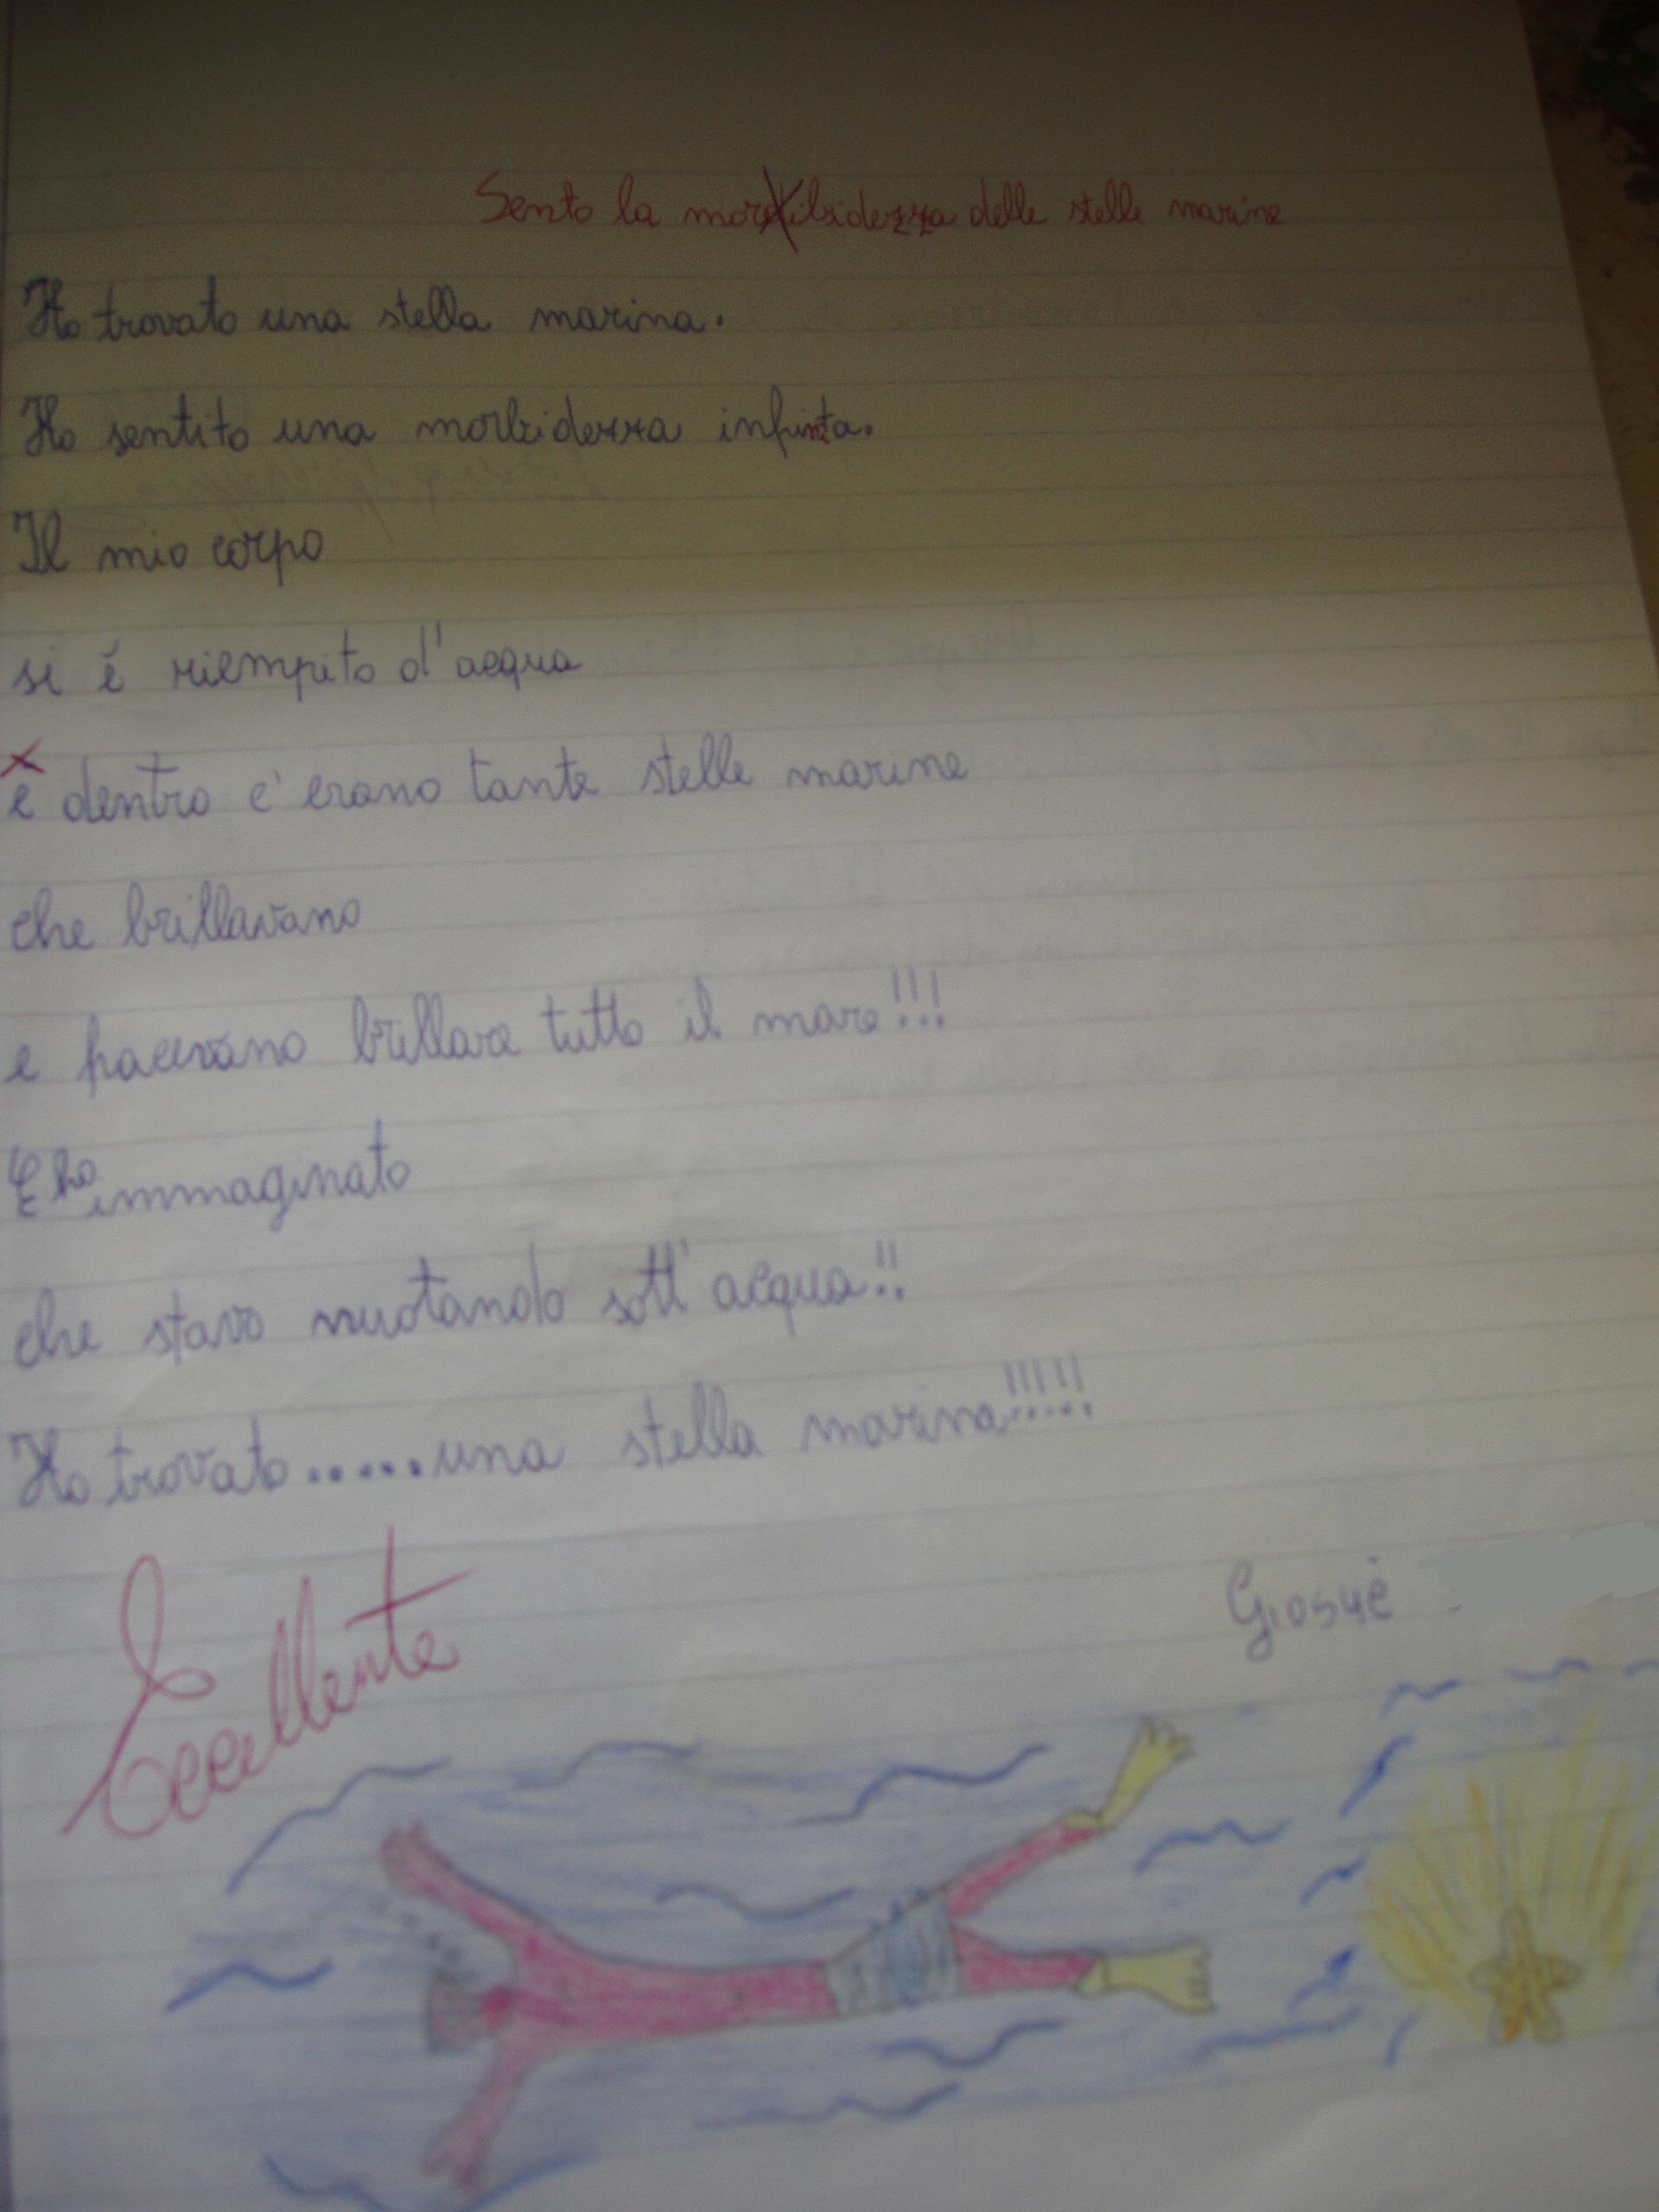 Sento la morbidezza delle stelle marine
Ho trovato una stella marina.
Ho sentito una morbidezza infinta.
Il mio corpo
si é riempito d'acqua
e dentro c'erano tante stelle marine
che brillavano
e facevano brillare tutto il mare!!!
E ho immaginato
che stavo nuotando sott'acqua!!
Ho trovato.....una stella marina!!!!!
Eccellente
Giosuè